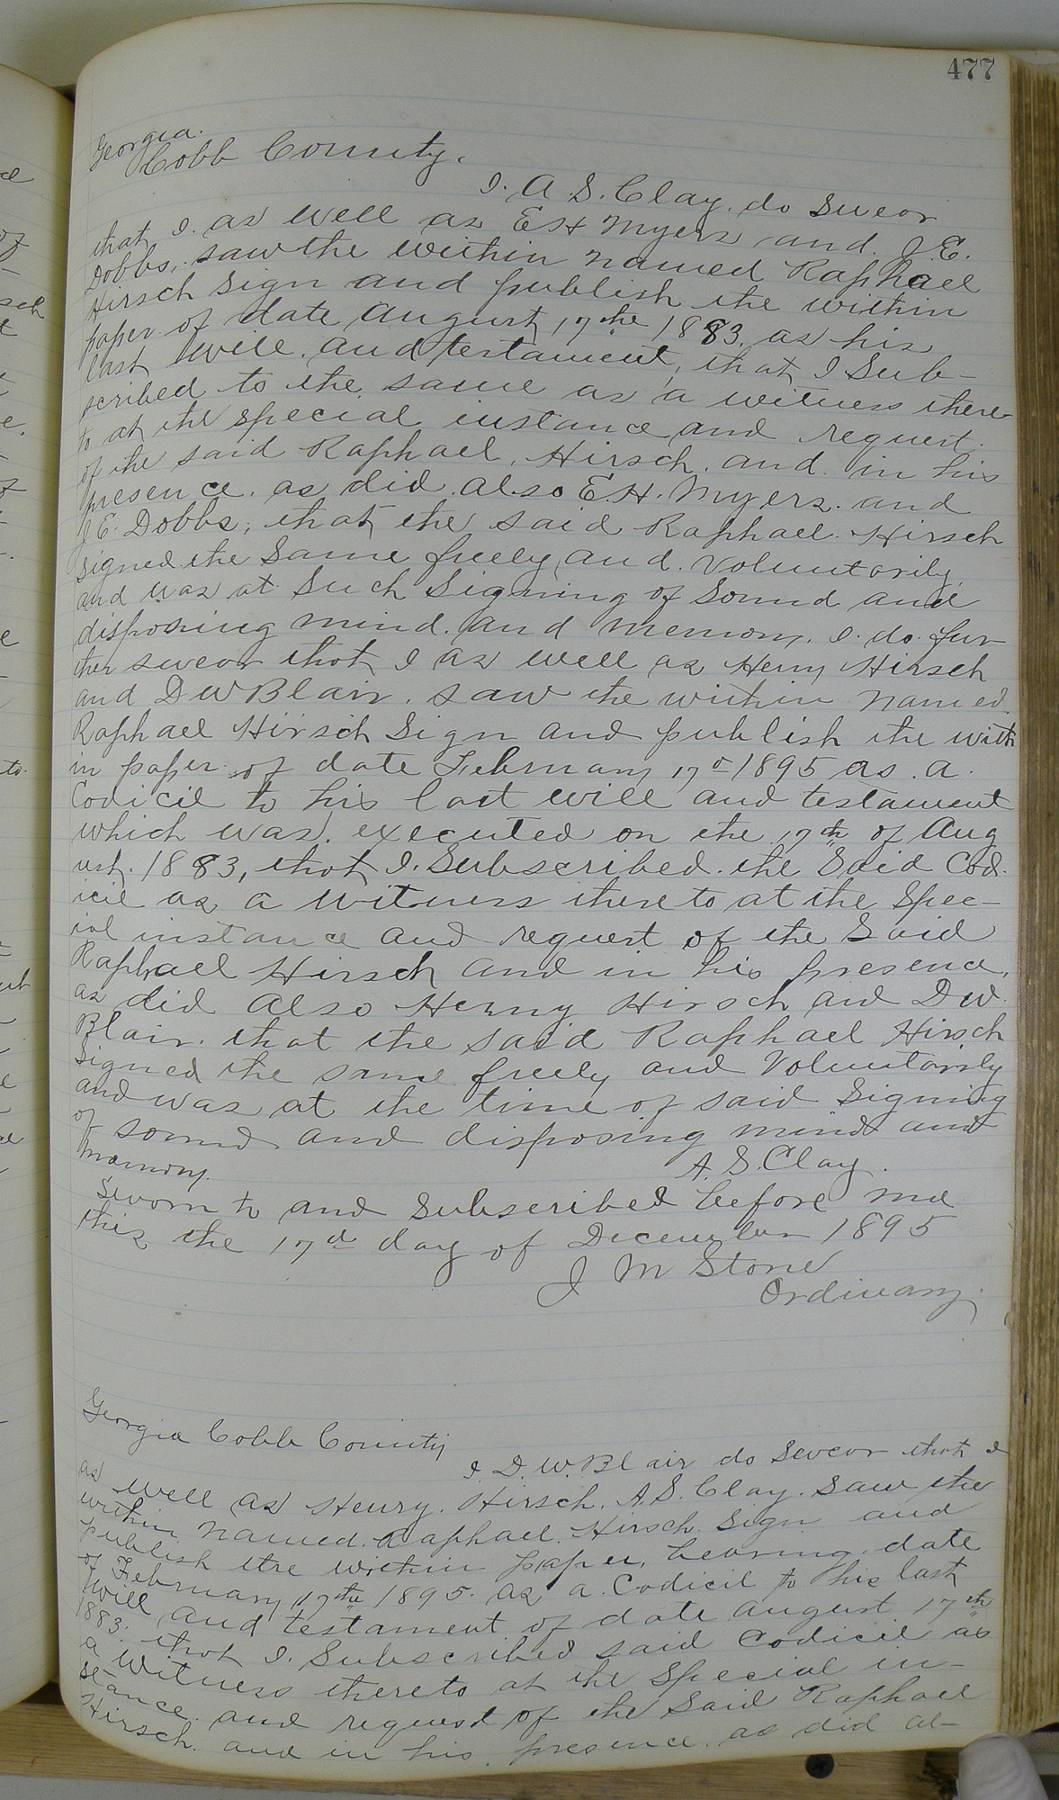 477
Georgia.
Cobb County.
I. A. S. Clay. do Swear
that I. as well as E H Myers and J. E.
Dobbs, saw the within named Raphael
Hirsch Sign and publish the within
paper of date August 17the 1883. as his
last Will. and testament, that I Sub-
scribed to the same as a witness there-
to at the special instance and request.
of the said Raphael. Hirsch. and in his
presence. as did also E. H. Myers. and
J. E. Dobbs, that the said Raphael. Hirsch
signed the Same freely and. Voluntarily,
and was at Such Signing of Sound and
disposing mind. and memory. I. do. fur-
ther swear that I as well as Henry Hirsch
and D W Blair. saw the within named.
Raphael Hirsch Sign and publish the with
in paper of date February 17th 1895 as. a.
Codicil to his last will and testament
which was. executed on the 17th of Aug
ust. 1883, that I. Subscribed. the Said Cod.
icil as a witness thereto at the Spec-
ial instance and request of the Said
Raphael Hirsch and in his presence.
as did also Henry Hirsch and D W.
Blair. that the said Raphael Hirsch
Signed the same freely and Voluntarily
and was at the time of said Signing
of sound and disposing mind and
memory.
A. S. Clay.
Sworn to and Subscribed before me
this the 17th day of December 1895
J M Stone
Ordinary.
Georgia Cobb County
I D. W. Blair do Swear that I
as well as Henry. Hirsch. A. S. Clay. Saw the
within named. Raphael. Hirsch. Sign and
publish the within paper, bearing. date
of February 17the 1895. as a. Codicil to his last
Will and testament of date August 17th
1883. that I. Subscribed said Codicil as
a Witness thereto at the Special in-
stance. and request of the Said Raphael
Hirsch. and in his. presence. as did al-